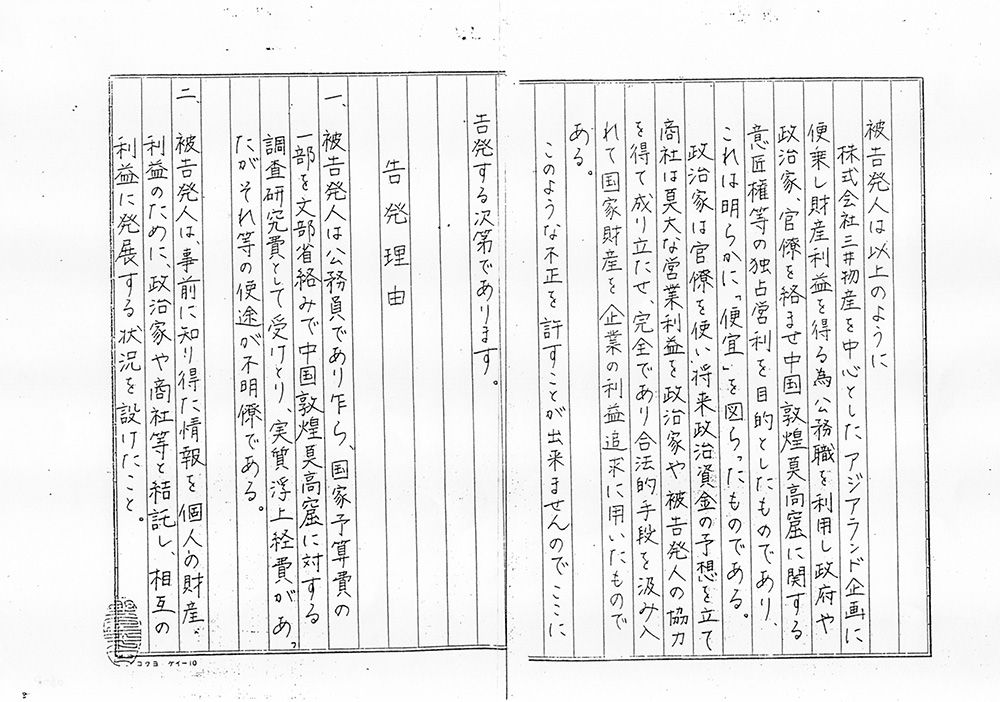 被告発人は以上のように
株式会社三井物産を中心としたアジアランド企画に
便乗し財産利益を得る為公務職を利用し政府や
政治家、官僚を絡ませ中国敦煌莫高窟に関する
意匠権等の独占営利を目的としたものであり、
これは明らかに「便宜」を図らったものである。
政治家は官僚を使い将来政治資金の予想を立て
商社は莫大な営業利益を政治家や被告発人の協力
を得て成り立たせ、完全であり合法的手段を汲み入
れて国家財産を企業の利益追求に用いたもので
ある。
このような不正を許すことが出来ませんのでここに
告発する次第であります。
告発理由
一、被告発人は公務員であり乍ら、国家予算費の
一部を文部省絡みで中国敦煌莫高窟に対する
調査研究費として受けとり、実質浮上経費があっ
たがそれ等の使途が不明僚である。
二、被告発人は、事前に知り得た情報を個人の財産・
利益のために、政治家や商社等と結託し、相互の
利益に発展する状況を設けたこと。
コクヨ ケイー10